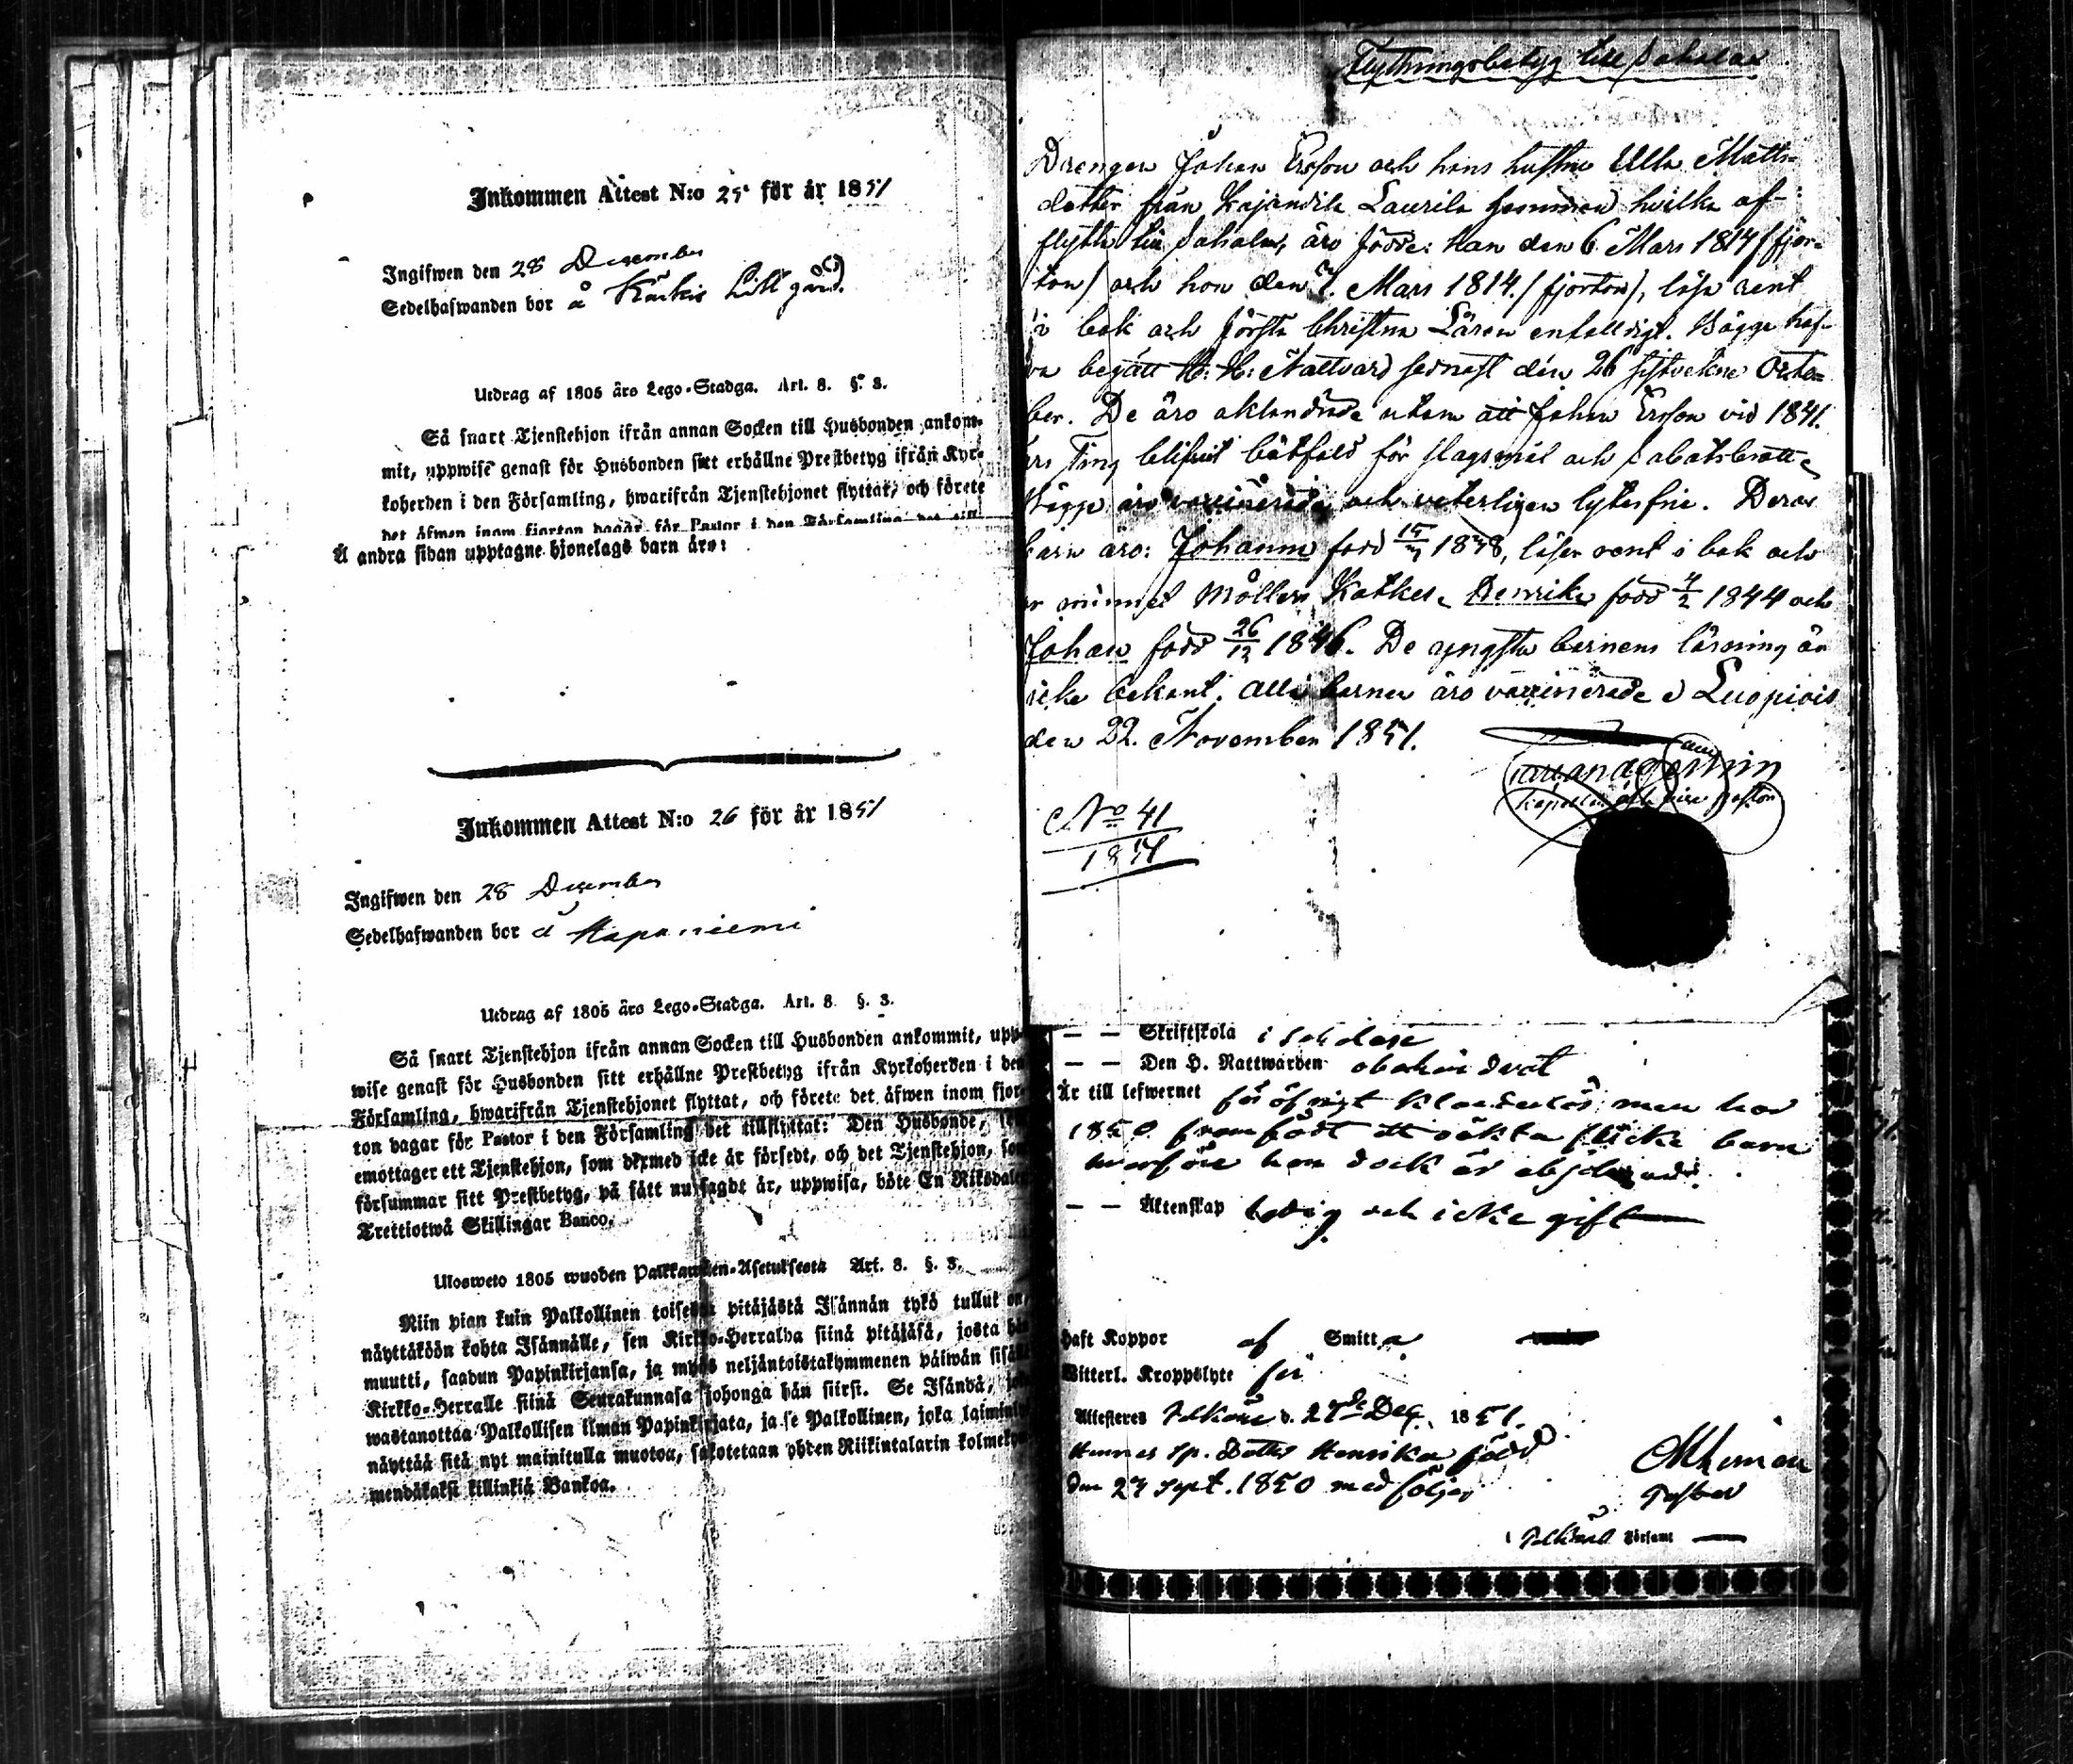 Inkommen Attest N:o 25 för år 1851
Ingifwen den 28 December
Sedelhafwanden bor å Kärkis Lillgård.
Utdrag af 1805 års Lego-Stadga. Art. 8. §. 3.
Så snart Tjenstehjon ifrån annan Socken till Husbonden ankom-
mit, uppwise genast för Husbonden sitt erhållne Prestbetyg ifrån Kyr-
koherden i den Församling, hwarifrån Tjenstehjonet flyttat, och förete
det äfwen inom fjorton dagar för Pastor i den Församling det till
Å andra sidan upptagne hjonelags barn äro:
Inkommen Attest N:o 26 för år 1851
Ingifwen den 28 December
Sedelhafwanden bor å Haponiemi
Utdrag af 1805 års Lego-Stadga. Art. 8 §. 3.
Så snart Tjenstehjon ifrån annan Socken till Husbonden ankommit, upp-
wise genast för Husbonden sitt erhållne Prestbetyg ifrån Kyrkoherden i den
Församling, hwarifrån Tjenstehjonet flyttat, och förete det äfwen inom fjor-
ton dagar för Pastor i den Församling det tillflyttat: Den Husbonde,
emottager ett Tjenstehjon, som dermed icke är försedt, och det Tjenstehjon, som
försummar sitt Prestbetyg, på sätt nu sagdt är, uppwisa, böte En Riksdaler
Trettiotwå Skillingar Banco.
Ulosweto 1805 wuoden Palkkawäen-Asetuksesta Art. 8. §. 3.
Niin pian kuin Palkollinen toisesta pitäjästä Isännän tykö tullut on,
näyttäköön kohta Isännälle, sen Kirkko-Herralda siinä pitäjäsä, josta hän
muutti, saadun Papinkirjansa, ja myös neljäntoistakymmenen päiwän sisällä
Kirkko-Herralle siinä Seurakunnasa johonga hän siirsi. Se Isändä, joka
wastanottaa Palkollisen ilman Papinkirjata, ja se Palkollinen, joka laiminlyö
näyttää sitä nyt mainitulla muotoa, sakotetaan yhden Riikintalarin kolmekym-
mendäkaksi killinkiä Bankoa.
Flyttningsbetyg till Sahalax
Drengen Johan Ersson och hans hustru Ulla Matts-
dotter från Kajandila Laurila hemman hvilka af-
flytta till Sahalax, äro födde: han den 6 Mars 1814 (fjor-
ton) och hon den 7. Mars 1814. (fjorton), läsa rent
i bok och förstå Christna Läran enfalldigt. Bägge haf-
va begått H: H: Nattvard sednast den 26 sistvekne Octo-
ber. De äro oklandrade utom att Johan Ersson vid 1841.
års Ting blifvit bötfäld för slagsmål och sabatsbrott.
Bägge äro vaccinerade och veterligen lytesfrie. Deras
barn äro: Johanna född 15/7 1838, läser rent i bok och
ur minnet Möllers Katkes, Henrika född 4/2 1844 och
Johan född 26/12 1846. De yngsta barnens läsning är
icke bekant. Alla barnen äro vaccinerade. Luopiois
den 22. November 1851.
Kapellan och vice Pastor
No 41
1851
— — Skriftskola i
— — Den H. Nattwarden obehindrat
Är till lefwernet för öfrigt klanderlös men har
1850 framfödt ett oäkta flicke barn
hvarföre hon dock är absolverad.
— — Äktenskap ledig och icke gift
Haft Koppor af Smitta
Witterl. Kroppslyte fri
Attesteras Pelkäne d. 27de Dec. 1851.
Hennes sp. Dotter Henrika född
den 27 Sept. 1850 medföljer
Pastor
i Pelkäne Församl